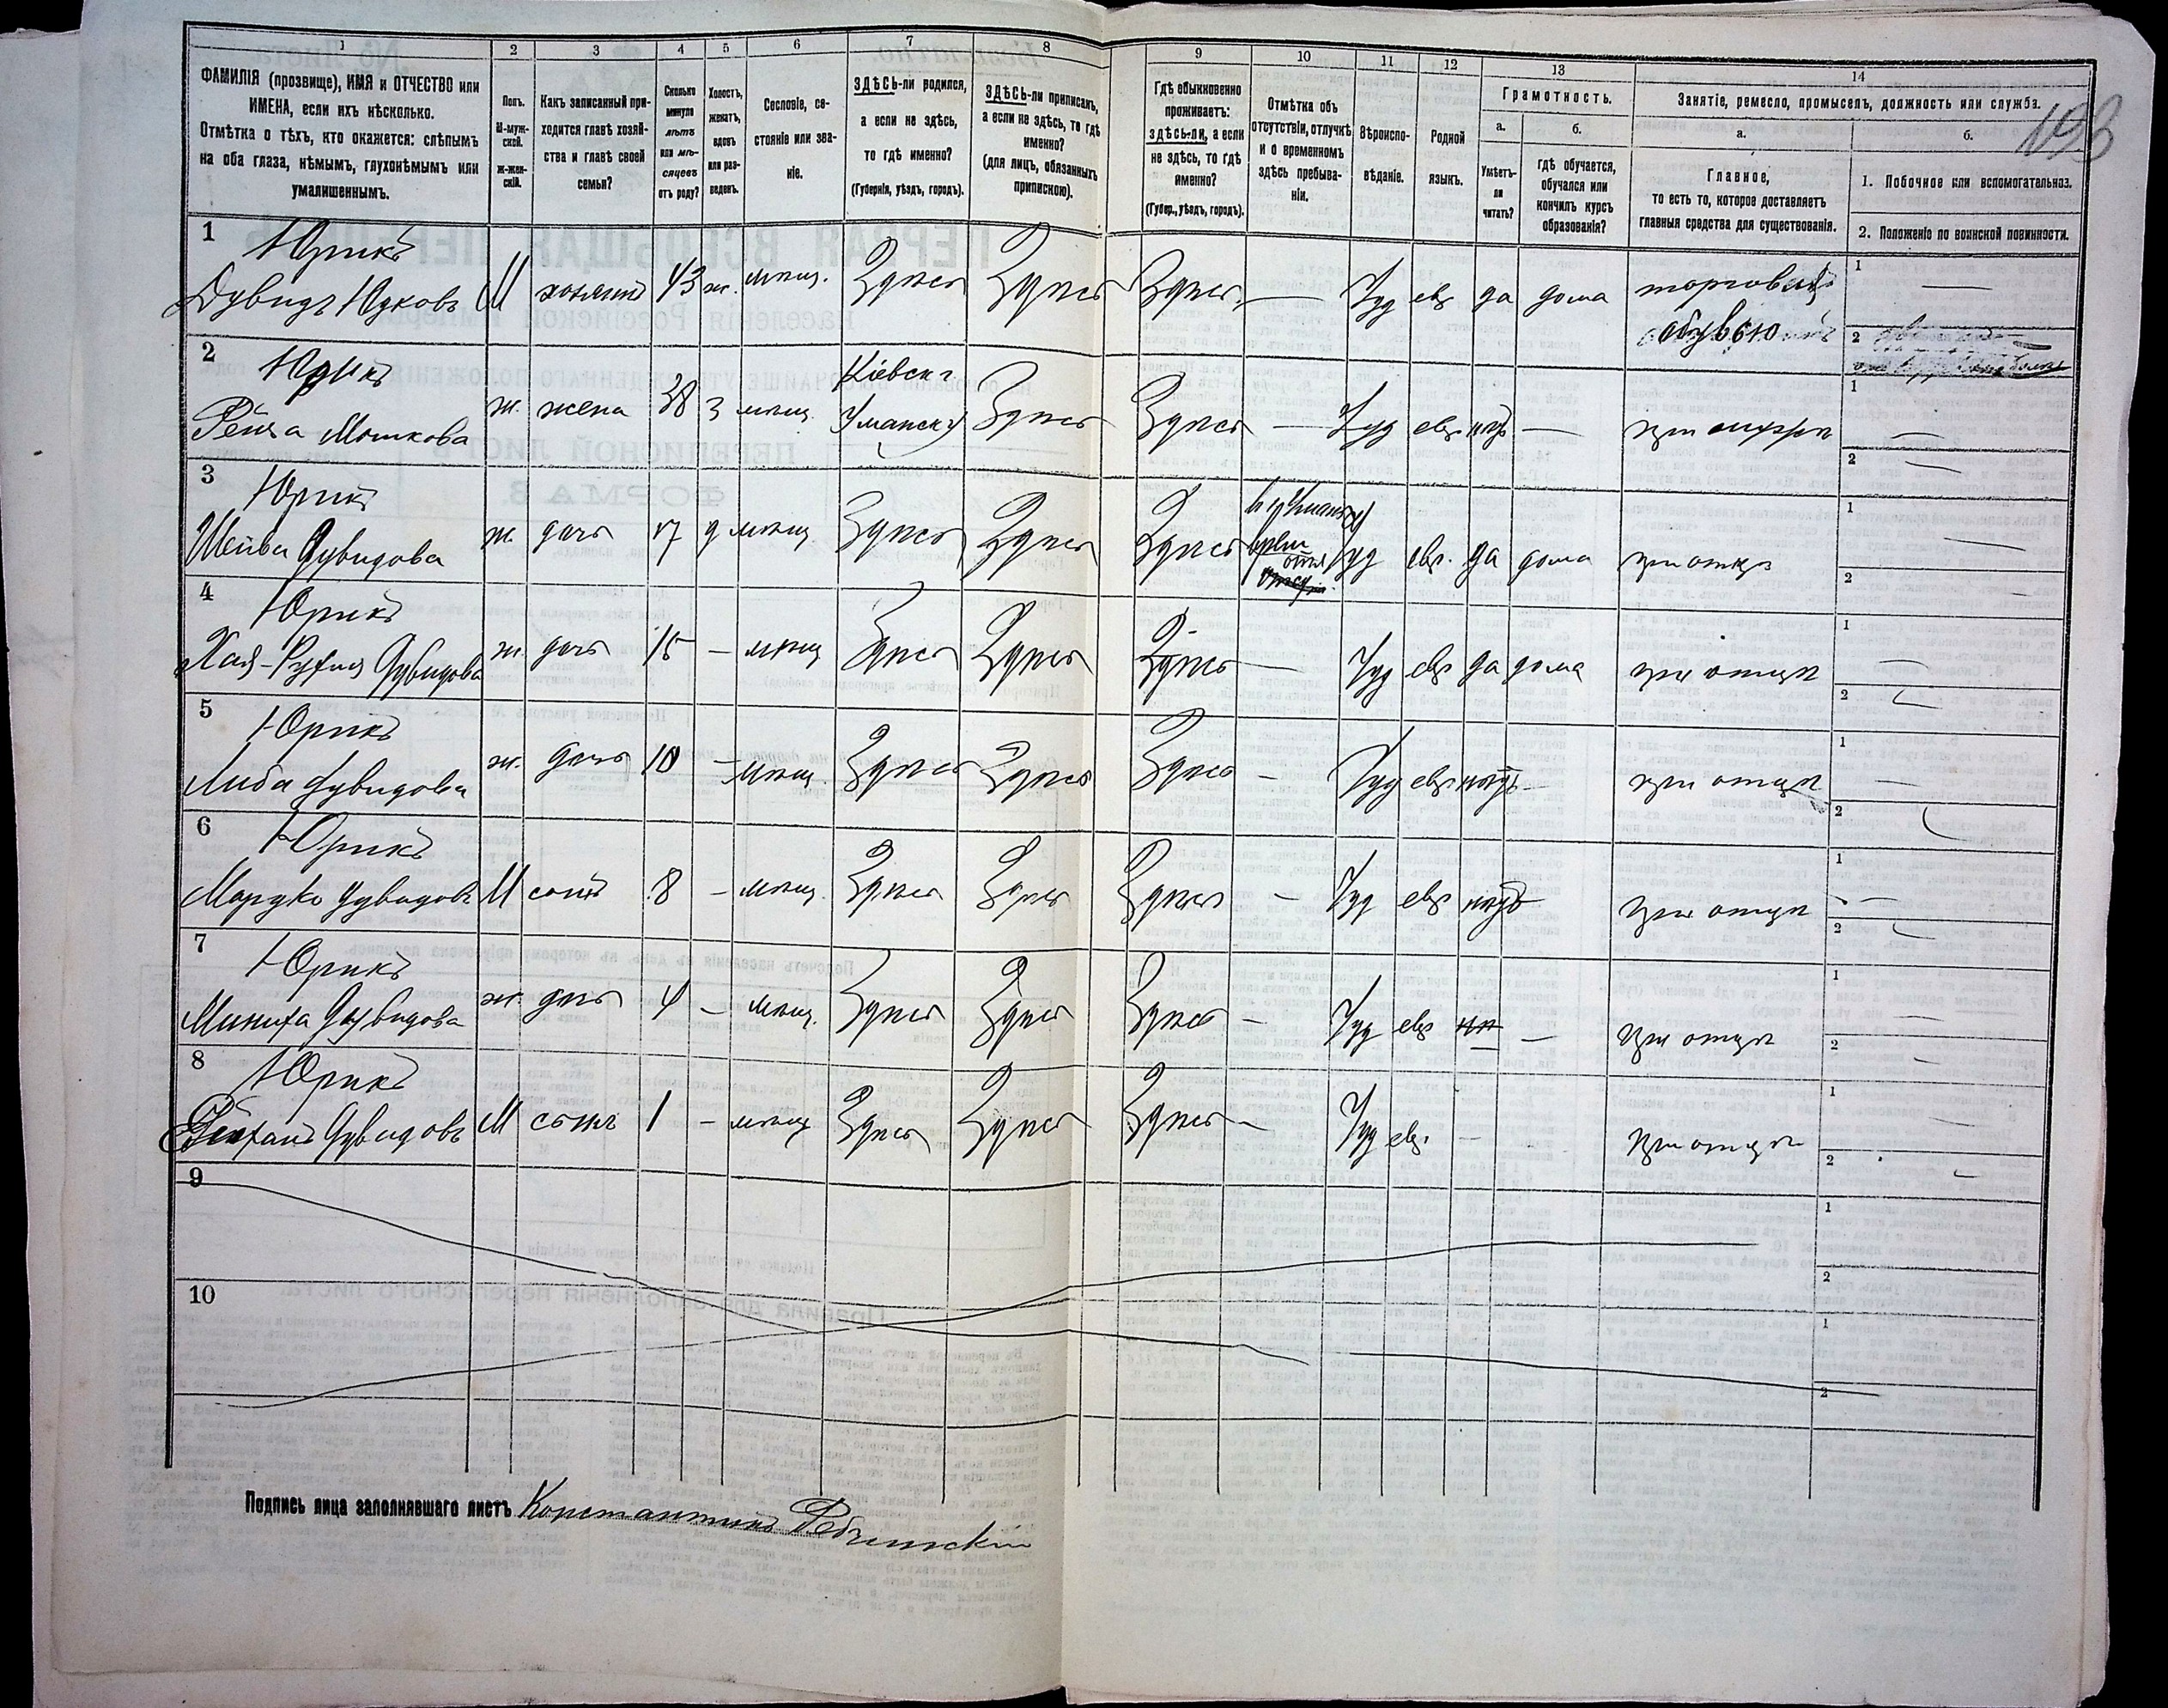 1 2 3 4 5 6 7 8 9 10 11 12 13 14
ФАМИЛІЯ (прозвище), ИМЯ и ОТЧЕСТВО или
ИМЕНА, если ихъ нѣсколько.
Отмѣтка о тѣхъ, кто окажется: слѣпымъ
на оба глаза, нѣмымъ, глухонѣмымъ или
умалишеннымъ.
Полъ.
М-муж-
ской.
Ж-жен-
скій.
Какъ записанный при-
ходится главѣ хозяй-
ства и главѣ своей
семьи?
Сколько
минуло
лѣтъ
или мѣ-
сяцевъ
отъ роду?
Холостъ,
женатъ,
вдовъ
или раз-
веденъ.
Сословіе, со-
стояніе или зва-
ніе.
ЗДѢСЬ-ли родился,
а если не здѣсь,
то гдѣ именно?
(Губернія, уѣздъ, городъ).
ЗДѢСЬ-ли приписанъ,
а если не здѣсь, то гдѣ
именно?
(для лицъ, обязанныхъ
припискою).
Гдѣ обыкновенно
проживаетъ:
здѣсь-ли, а если
не здѣсь, то гдѣ
именно?
(Губер., уѣздъ, городъ).
Отмѣтка объ
отсутствіи, отлучкѣ
и о временномъ
здѣсь пребыва-
ніи.
Вѣроиспо-
вѣданіе.
Родной
языкъ.
Грамотность.
а.
Умѣетъ-
ли
читать?
б.
гдѣ обучается,
обучался или
кончилъ курсъ
образованія?
Занятіе, ремесло, промыселъ, должность или служба.
а.
Главное,
то есть то, которое доставляетъ
главныя средства для существованія.
б.
1. Побочное или вспомогательное.
2. Положеніе по воинской повинности.
193
1 Юрикъ
Дувидъ Юдковъ М хозяинъ 43 ж. мѣщ. Здѣсь Здѣсь Здѣсь — Іуд евр да дома торговецъ 1 —
обувью 2
2 Юрикъ Кіевск г
Рейза Мошкова ж. жена 38 з мѣщ. Уманск у Здѣсь Здѣсь — Іуд евр нѣтъ — 1 —
2 —
3 Юрикъ
Шейва Дувидова ж. дочь 17 д мѣщ Здѣсь Здѣсь Здѣсь Іуд евр. да дома при отцѣ 1 —
2 -
4 Юрикъ
Хая-Рухля Дувидова ж. дочь 15 — мѣщ Здѣсь Здѣсь Здѣсь — Іуд евр да дома при отцѣ 1 —
2 -
5 Юрикъ
Либа Дувидова ж. дочь 10 - мѣщ. Здѣсь Здѣсь Здѣсь - Іуд евр нѣтъ - при отцѣ 1 —
2
6 Юрикъ
Мордко Дувидовъ М сынъ 8 - мѣщ. Здѣсь Здѣсь Здѣсь - Іуд евр нѣтъ при отцѣ 1 —
2 -
7 Юрикъ
Дувидова ж. дочь 4 - мѣщ. Здѣсь Здѣсь Здѣсь - Іуд евр — при отцѣ 1 —
2 -
8 Юрикъ
Дувидовъ М сынъ 1 - мѣщ Здѣсь Здѣсь Здѣсь - Іуд евр. - при отцѣ 1 —
2 -
9 1
2
10 1
2
Подпись лица заполнявшаго листъ Константинъ